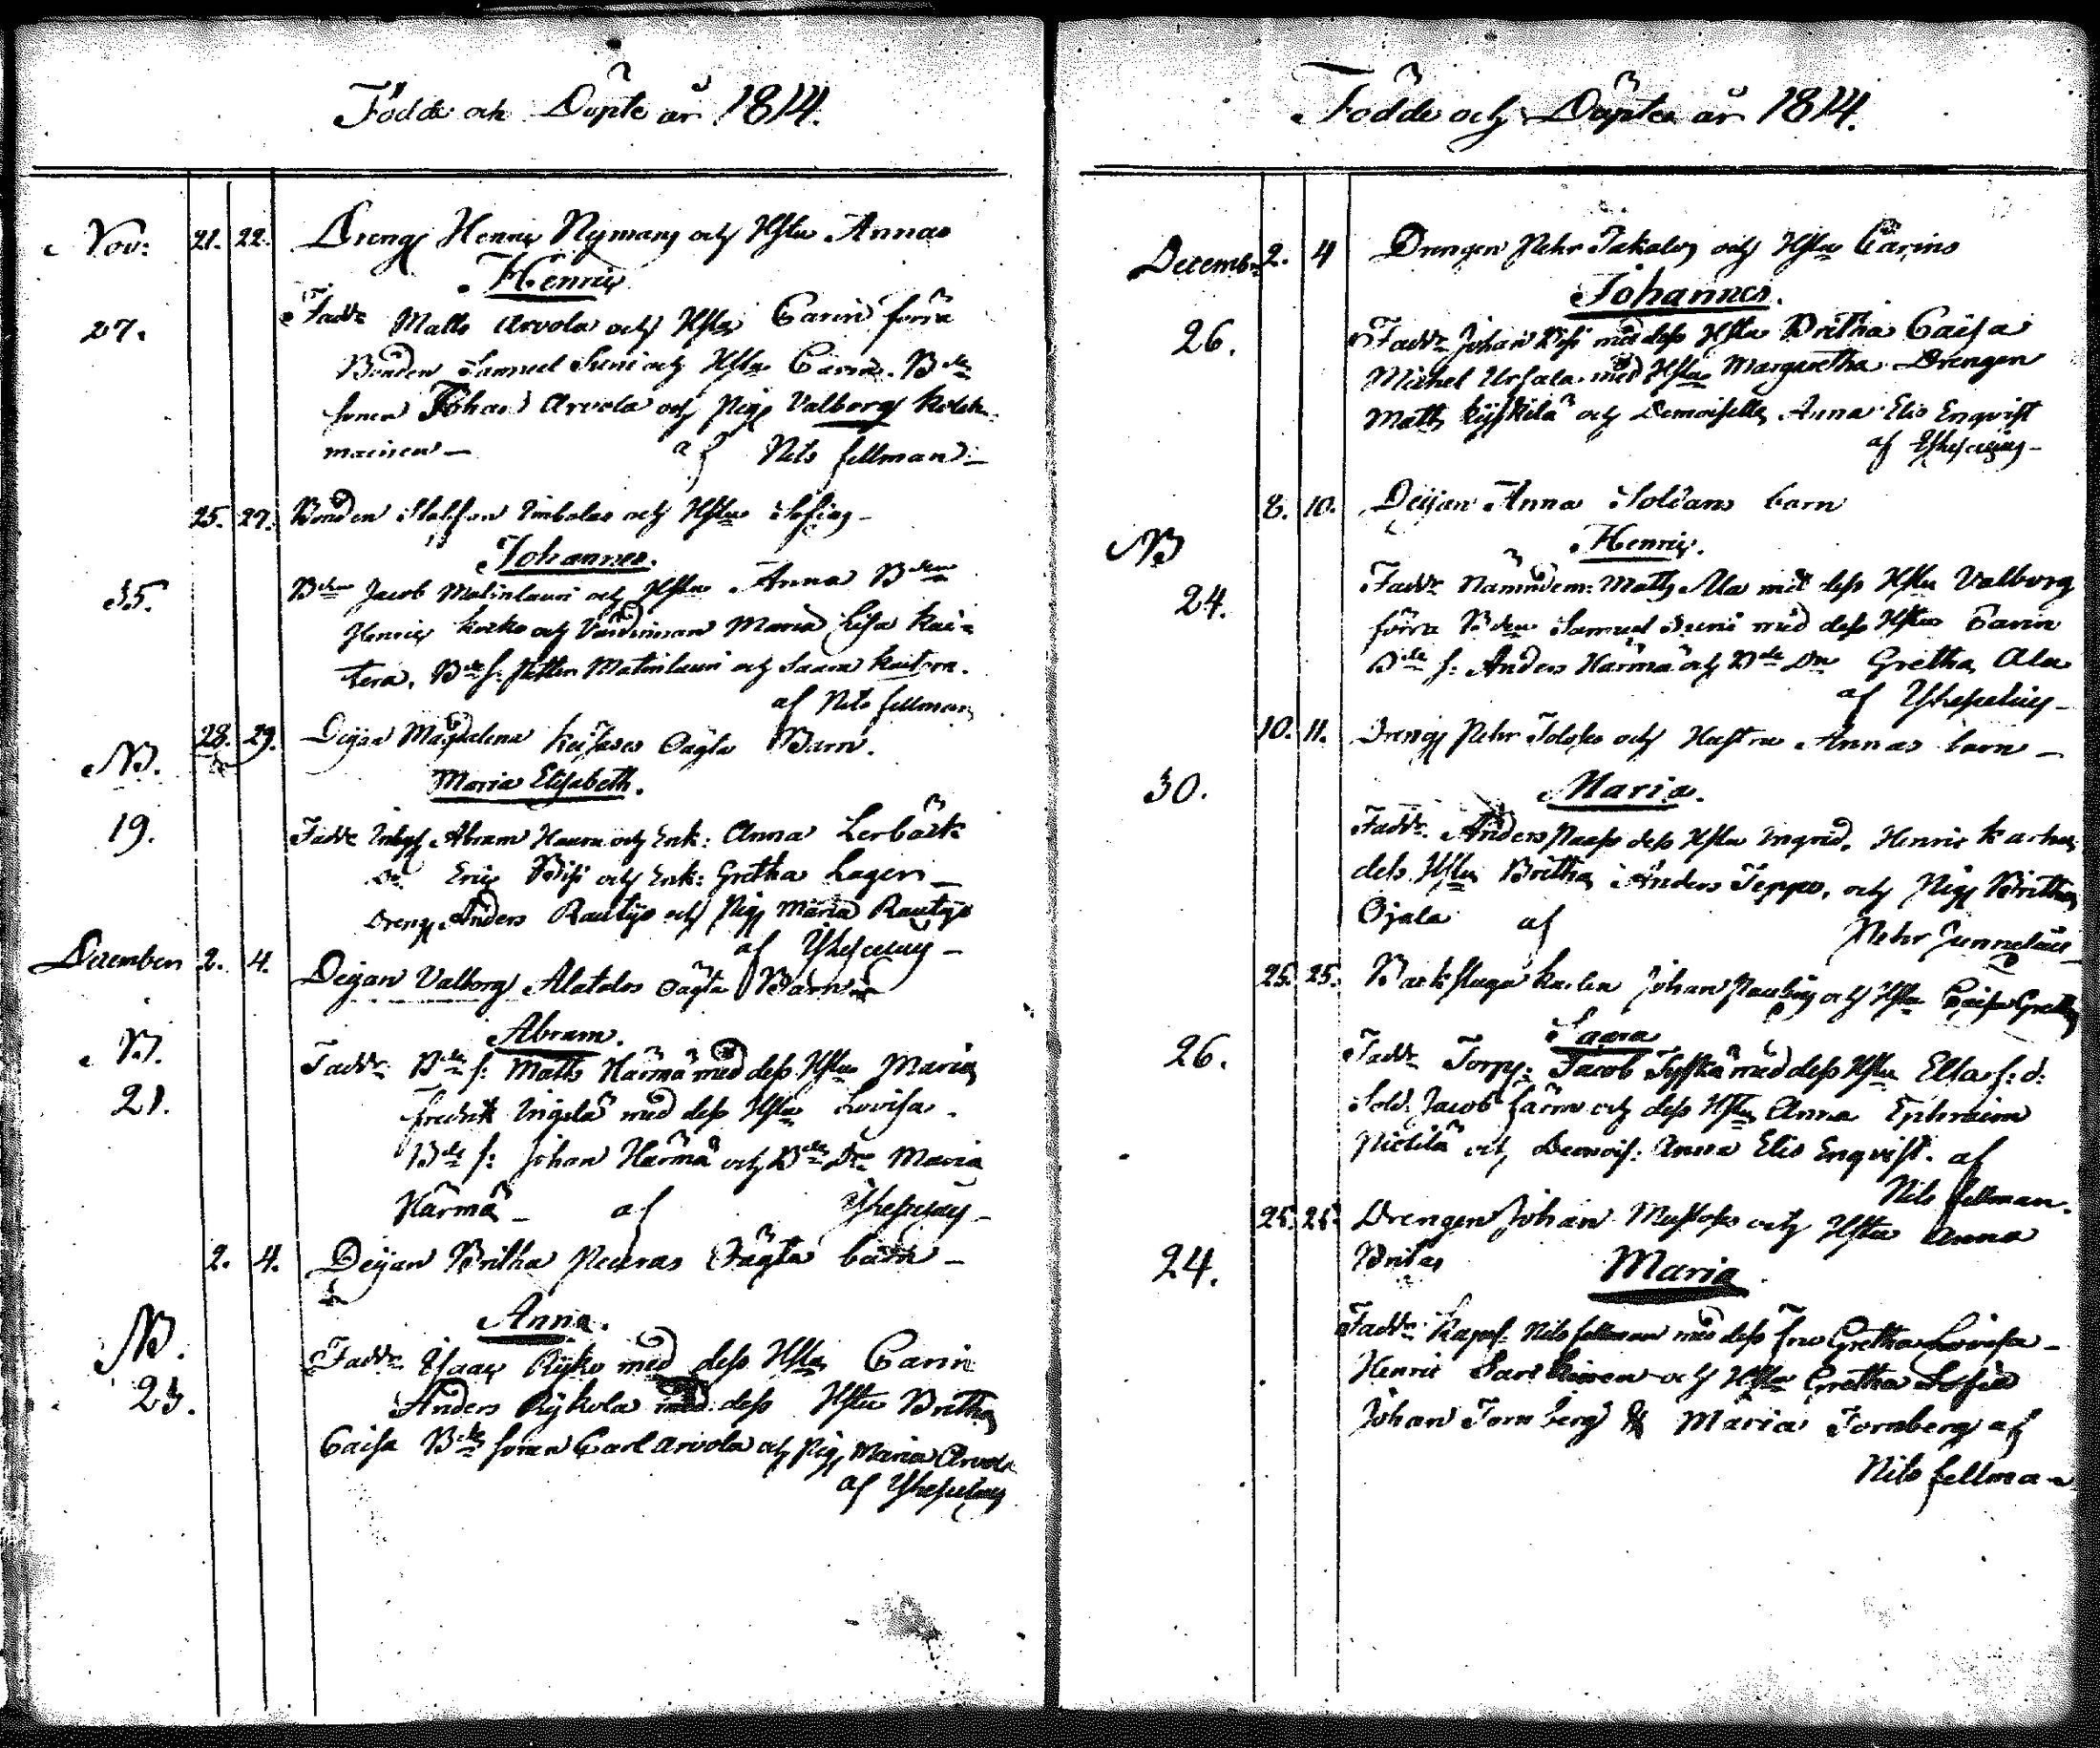 Födde och Döpte år 1814.
Nov: 21. 22. Dreng Henric Nymans och Hstru Annas
Henric
27. Fadd: Matts Arvola och Hstru Carin förra
Bonden Samuel Suni och Hstru Carin. Bde
sonen Johan Arvola och Pig Valborg Koleh-
mainen — af Nils Fellman —
25. 27. Bonden Staffan Imbolas och Hstru Sofias —
Johannes.
35. Bden Jacob Matinlauri och Hstru Anna Bden
Henric Koiko och Värdinnan Maria Lisa Kai-
tera. Bde s: Petter Matinlauri och Saara Kaitera.
af Nils Fellman
28. 29. Deijan Magdalena Oägta Barn.
NB. Maria Elisabeth.
19. Fadd: Inhys Abram Haara och Enk: Anna Lerbäck
Dr Eric Bisi och Enk: Gretha Lagers —
Dreng Anders Rautyo och Pig Maria Rautyo
af
December 2. 4. Deijan Valborg Alatalos oägta Barn
NB. Abram.
21. Fadd: Bde s: Matts Härmä med dess Hstru Maria
Fredrik Ingelä med dess Hstru Lovisa.
Bde s: Johan Härmä och Bde Dr Maria
Härmä — af
2. 4. Deijan Britha Peuras Oägta barn —
NB. Anna.
23. Fadd: Isaac Ryko med dess Hstru Carin
Anders Rykola med dess Hstru Britha
Caisa Bde sonen Carl Arvola och Pig Maria Arvola
af
Födde och Döpte år 1814.
Decemb: 2. 4 Drengen Pehr Jakolas och Hstru Carins
Johannes.
26. Fadd: Johan Bisi med dess Hstru Britha Caisa
Michel Ursala med Hstru Margaretha Drengen
Matts Kyskilä och Demoiselle Anna Elis Enqvist
af
8. 10. Deijan Anna Soldans barn
NB Henric.
24. Fadd: Nämndem: Matts Ala med dess Hstru Valborg
förra Bden Samuel Suni med dess Hstru Carin
Bde s: Anders Härmä och Bde Dr Gretha Ala
af
10. 11. Dreng Pehr Tolops och Hustru Annas barn —
30. Maria.
Fadd: Anders Paaso dess Hstru Ingrid. Henric Karhu
dess Hstru Britha Anders Seppo, och Pig Britha
Ojala af Pehr Junnelius
25. 25. Backstuga Karlen Johan Paulus och Hstru Caisa Gretas
Saara
26. Fadd: Torp: Jacob Tyskä med dess Hstru Elsa f: d:
Sold: Jacob Färm och dess Hstru Anna Ephraim
Pietilä och Demois: Anna Elis Enqvist. af
Nils Fellman.
25. 25. Drengen Johan Mustos och Hstru Anna
24. Britas Maria
Fadd: Kapels: Nils Fellman med dess Fru Gretha Lovisa —
Henric och Hstru Gretha Sofia
Johan Tornberg & Maria Tornberg af
Nils Fellman